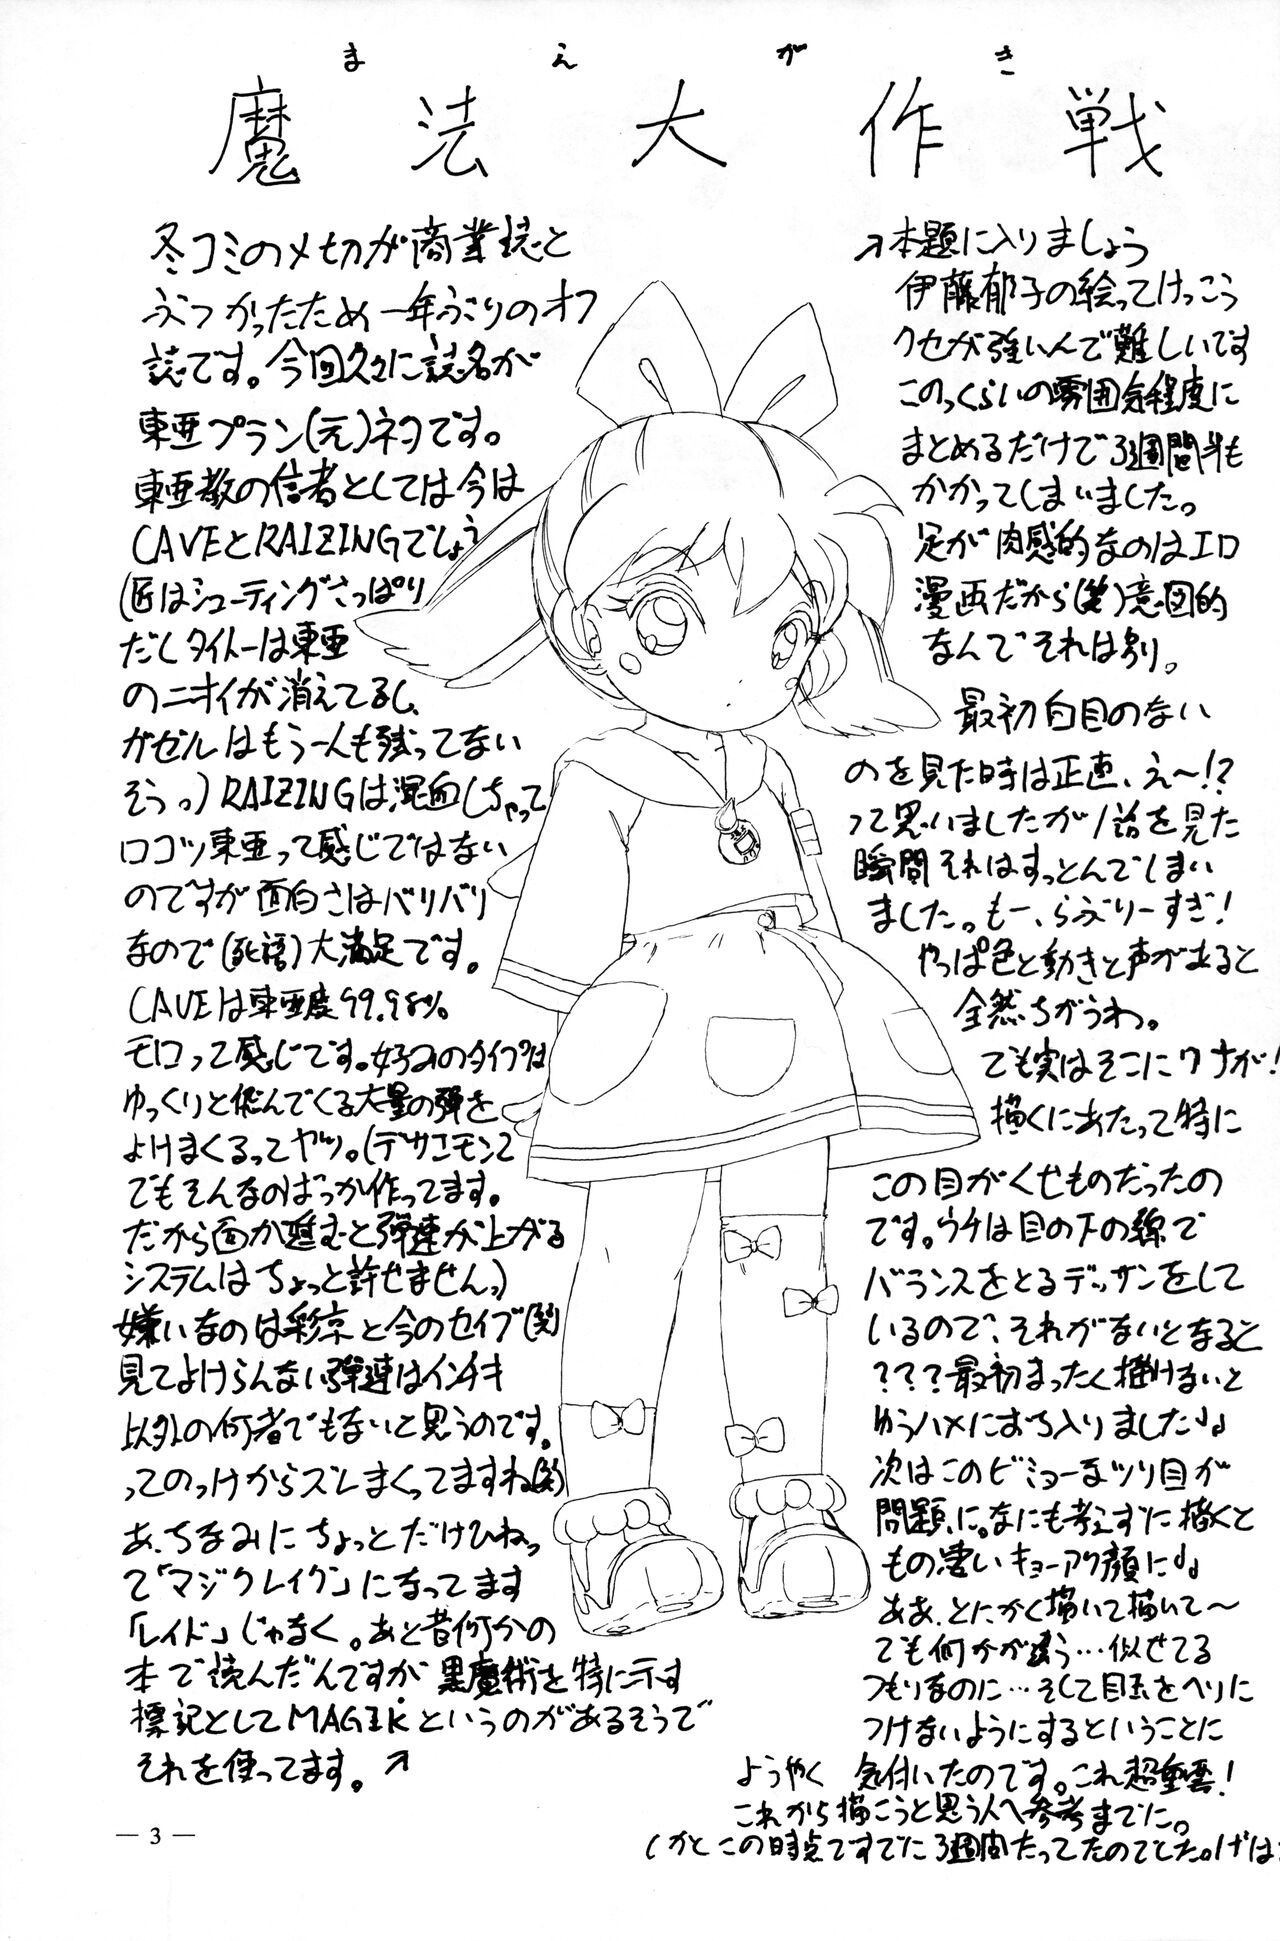 まえがき
魔法大作戦
冬コミの〆切が商業誌と
ぶつかったため一年ぶりのオフ
誌です。今回久々に誌名が
東亜プラン(元)ネタです。
東亜教の信者としては今は
CAVEとRAIZINGでしょう
(匠はシューティングさっぱり
だしタイトーは東亜
のニオイが消えてるし、
ガゼルはもう一人も残ってない
そうっ)RAIZINGは混血しちゃって
ロコツ東亜って感じではない
のですが面白さはバリバリ
なので(死語)大満足です。
CAVEは東亜度99.98%。
モロって感じです。好みのタイプは
ゆっくりと飛んでくる大量の弾を
よけまくるってヤツ。(デザエモン2
でもそんなのばっか作ってます。
だから面が進むと弾速が上がる
システムはちょっと許せませんっ)
嫌いなのは彩京と今のセイブ(笑)
見てよけらんない弾速はインチキ
以外の何者でもないと思うのです。
ってのっけからズレまくってますね(笑)
あ、ちなみにちょっとだけひねっ
て「マジクレイク」になってます
「レイド」じゃなく。あと昔何かの
本で読んだんですが黒魔術を特に示す
標記としてMAGIKというのがあるそうで
それを使ってます。↗
↗本題に入りましょう
伊藤郁子の絵ってけっこう
クセが強いんで難しいです
このっくらいの雰囲気程度に
まとめるだけで3週間半も
かかってしまいました。
足が肉感的なのはエロ
漫画だから(笑)意図的
なんでそれは別。
最初白目のない
のを見た時は正直、え〜!?
って思いましたが1話を見た
瞬間それはすっとんでしまい
ました。もー、らぶりーすぎ!
やっぱ色と動きと声があると
全然ちがうわ。
でも実はそこにワナが!
描くにあたって特に
この目がくせものだったの
です。ウチは目の下の線で
バランスをとるデッサンをして
いるので、それがないとなると
???最初まったく描けないと
ゆうハメにおち入りました♩
次はこのビミョーなツリ目が
問題に。なにも考えずに描くと
もの凄いキョーアク顔に♩
ああ、とにかく描いて描いて〜
でも何かが違う…似せてる
つもりなのに…そして目玉をヘリに
つけないようにするということに
ようやく 気付いたのです。これ超重要!
これから描こうと思う人へ参考までに。
(かとこの時点ですでに3週間たってたのでした。げは
— 3 —